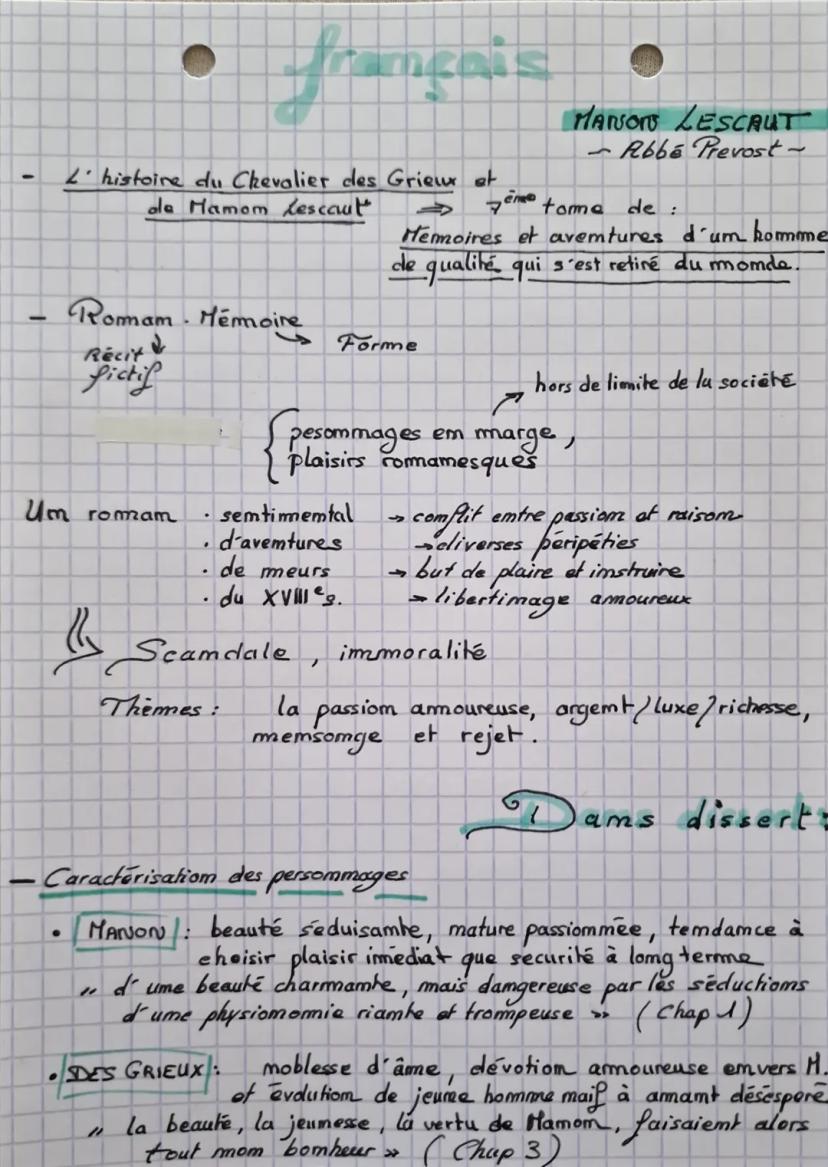 français
MANON LESCAUT
~ Abbé Prevost ~
- L'histoire du Chevalier des Grieux et
de Manon Lescaut ⇒ 7ème tome de :
Mémoires et aventures d'un homme
de qualité qui s'est retiré du monde.
- Roman. Mémoire
→ Forme
Récit
fictif
→ hors de limite de la société
{ pesonnages en marge,
plaisirs romanesques
Un roman · sentimental → conflit entre passion et raison
· d'aventures → diverses péripéties
· de meurs → but de plaire et instruire
· du XVIIIe s. → libertinage amoureux
⇒ Scandale, immoralité
Thèmes : la passion amoureuse, argent/luxe/richesse,
mensonge et rejet.
Dans dissert:
- Caractérisation des personnages
• MANON : beauté séduisante, mature passionnée, tendance à
choisir plaisir imédiat que sécurité à long terme
" d'une beauté charmante, mais dangereuse par les séductions
d'une physionomie riante et trompeuse » (Chap 1)
• DES GRIEUX : noblesse d'âme, dévotion amoureuse envers M.
et évolution de jeune homme naïf à amant désésperé
" la beauté, la jeunesse, la vertu de Manon, faisaient alors
tout mon bonheur » (Chap 3)